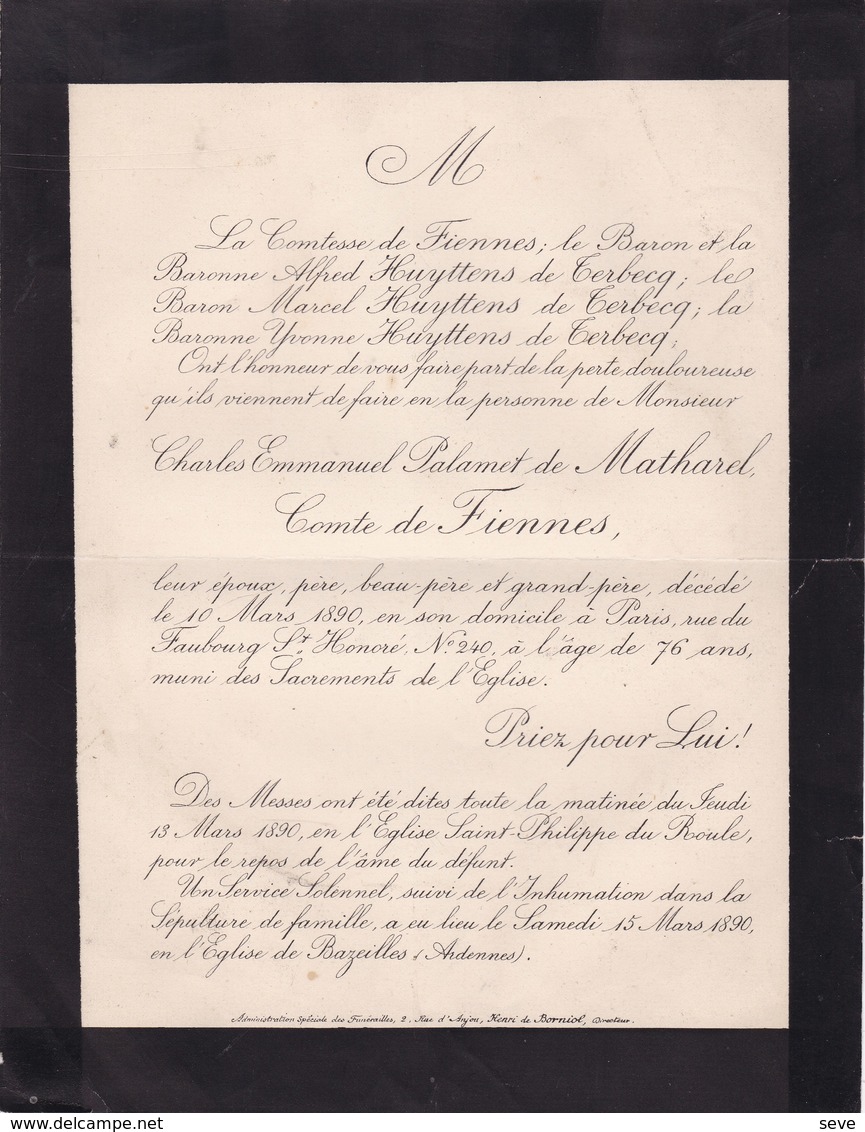 M
La Comtesse de Fiennes; le Baron et la
Baronne Alfred Huyttens de Terbecq; le
Baron Marcel Huyttens de Terbecq; la
Baronne Yvonne Huyttens de Terbecq;
Ont l'honneur de vous faire part de la perte douloureuse
qu'ils viennent de faire en la personne de Monsieur
Charles Emmanuel Palamet de Matharel,
Comte de Fiennes,
leur époux, père, beau-père et grand-père, décédé
le 10 Mars 1890, en son domicile à Paris, rue du
Faubourg St. Honoré, No 240, à l'âge de 76 ans,
muni des Sacrements de l'Eglise.
Priez pour Lui!
Des Messes ont été dites toute la matinée du Jeudi
13 Mars 1890, en l'Eglise Saint-Philippe du Roule,
pour le repos de l'âme du défunt.
Un Service Solennel, suivi de l'Inhumation dans la
Sépulture de famille, a eu lieu le Samedi 15 Mars 1890,
en l'Eglise de Bazeilles (Ardennes).
Administration Spéciale des Funérailles, 2, Rue d'Anjou, Henri de Borniol, Directeur.
delcampe.net
seve